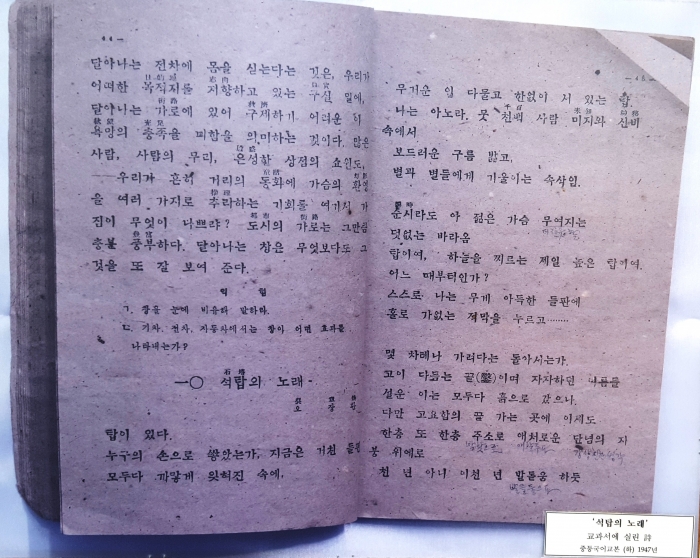 — 44 —
달아나는 전차에 몸을 싣는다는 것은, 우리가
어떠한 목적지를 지향하고 있는 구실 밑에,
달아나는 가로에 있어 구제하기 어려운 허
욕망의 충족을 피함을 의미하는 것이다. 많은
사람, 사람의 무리, 은성한 상점의 쇼윈도,
——우리가 흔히 거리의 동화에 가슴의 환영
을 여러 가지로 추락하는 기회를 여기서 가
짐이 무엇이 나쁘랴? 도시의 가로는 그만큼
충분 풍부하다. 달아나는 창은 무엇보다도 그
것을 또 잘 보여 준다.
익 힘
ㄱ. 창을 눈에 비유해 말하라.
ㄴ. 기차, 전차, 자동차에서는 창이 어떤 효과를
나타내는가?
石塔
一〇 석탑의 노래
오 장 환
탑이 있다.
누구의 손으로 쌓았는가, 지금은 거친 들판
모두다 까맣게 잊혀진 속에,
— 45 —
무거운 입 다물고 한없이 서 있는 탑.
나는 아노라, 뭇 천백 사람 미지와 신비
속에서
보드러운 구름 밟고,
별과 별들에게 기울이는 속삭임.
순시라도 아 젊은 가슴 무여지는
덧없는 바라옴
탑이여, 하늘을 찌르는 제일 높은 탑이여.
어느 때부터인가?
스스로 나는 무게 아득한 들판에
홀로 가없는 적막을 누르고……
몇 차례나 가려다는 돌아서는가.
고이 다듬는 끌(鑿)이며 자자하던 이름들
설운 이는 모두다 흙으로 갔으나,
다만 고요함의 끝 가는 곳에 이제도
한층 또 한층 주소로 애처로운 단념의 지
붕 위에로
천 년 아니 이천 년 발돋움 하듯
'석탑의 노래'
교과서에 실린 詩
중등국어교본 (하) 1947년